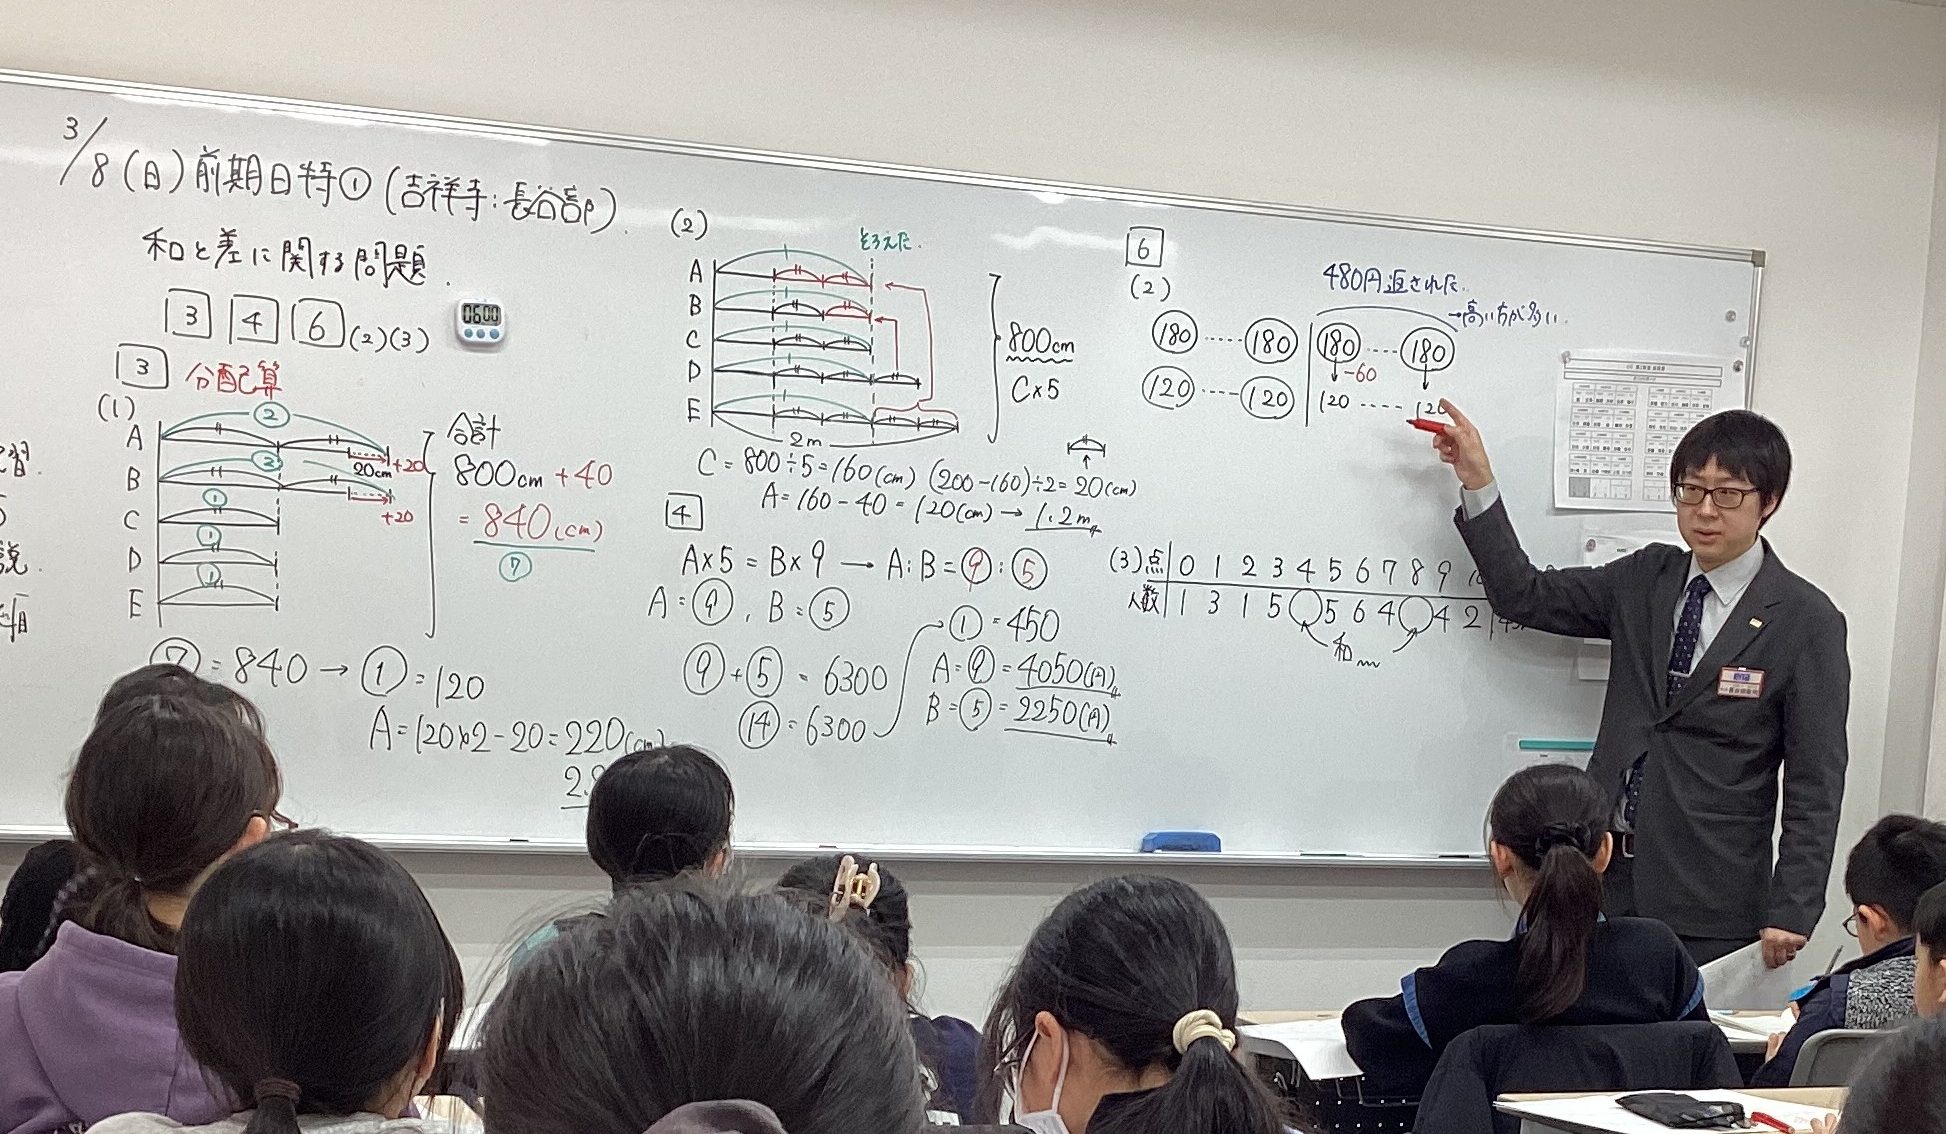 3/8(日)前期日特①(吉祥寺:長谷部)
和と差に関する問題.
3 4 6 (2)(3)
06:00
3 分配算
(1)
②
A
20cm +20
③
B
+20
①
C
①
D
①
E
合計
800cm +40
=840(cm)
⑦
⑦=840→①=120
A=120×2-20=220(cm)
2.
(2)
そろえた.
A
B
C
D
E
2m
800cm
C×5
C=800÷5=160(cm) (200-160)÷2=20(cm)
A=160-40=120(cm)→1.2m
4
A×5=B×9→A:B=⑨:⑤
A=⑨, B=⑤
⑨+⑤=6300
⑭=6300
①=450
A=⑨=4050(円)
B=⑤=2250(円)
6
(2)
480円返された.
→高い方が多い.
180 ····· 180 180 ···· 180
-60
120 ····· 120 120 ···· 120
(3)点 0 1 2 3 4 5 6 7 8 9
人数 1 3 1 5 ○ 5 6 4 ○ 4 2
和
習.
説.